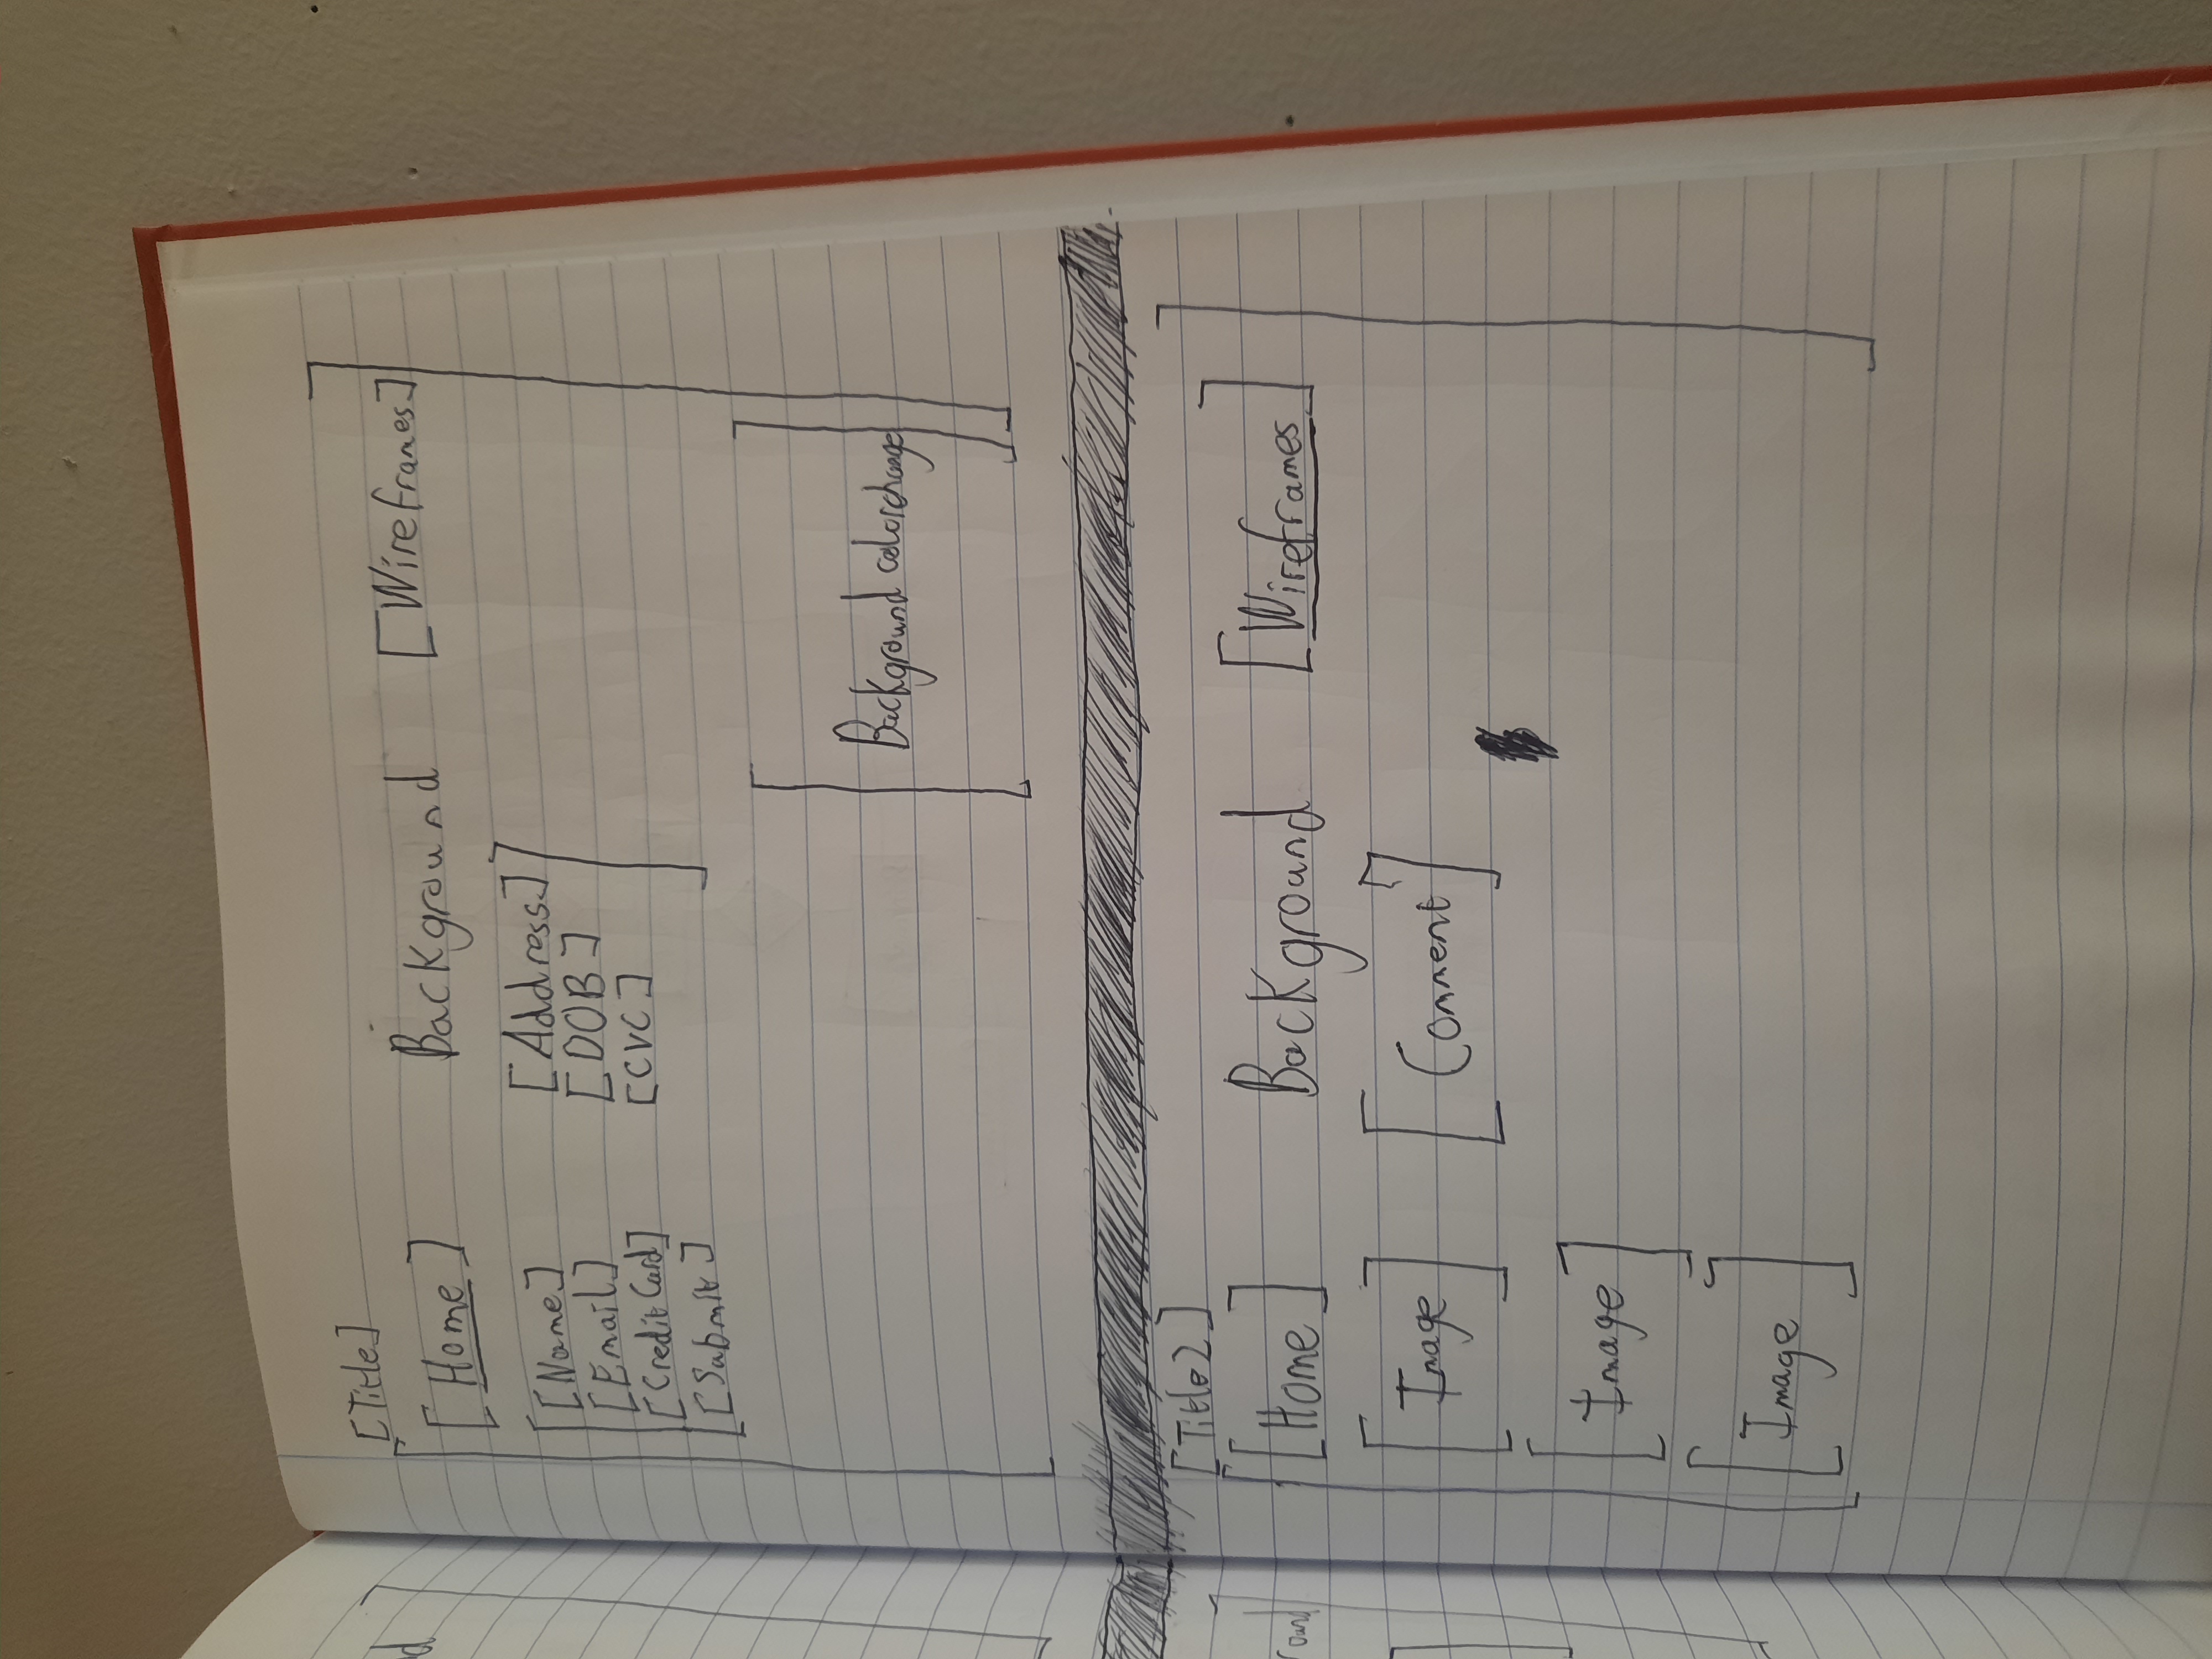 [Title]
[Home] Background [Wireframes]
[Name] [Address]
[Email] [DOB]
[Credit Card] [CVC]
[Submit]
Background colorchange
[Title2]
[Home] Background [Wireframes]
[Image] [Comment]
[Image]
[Image]